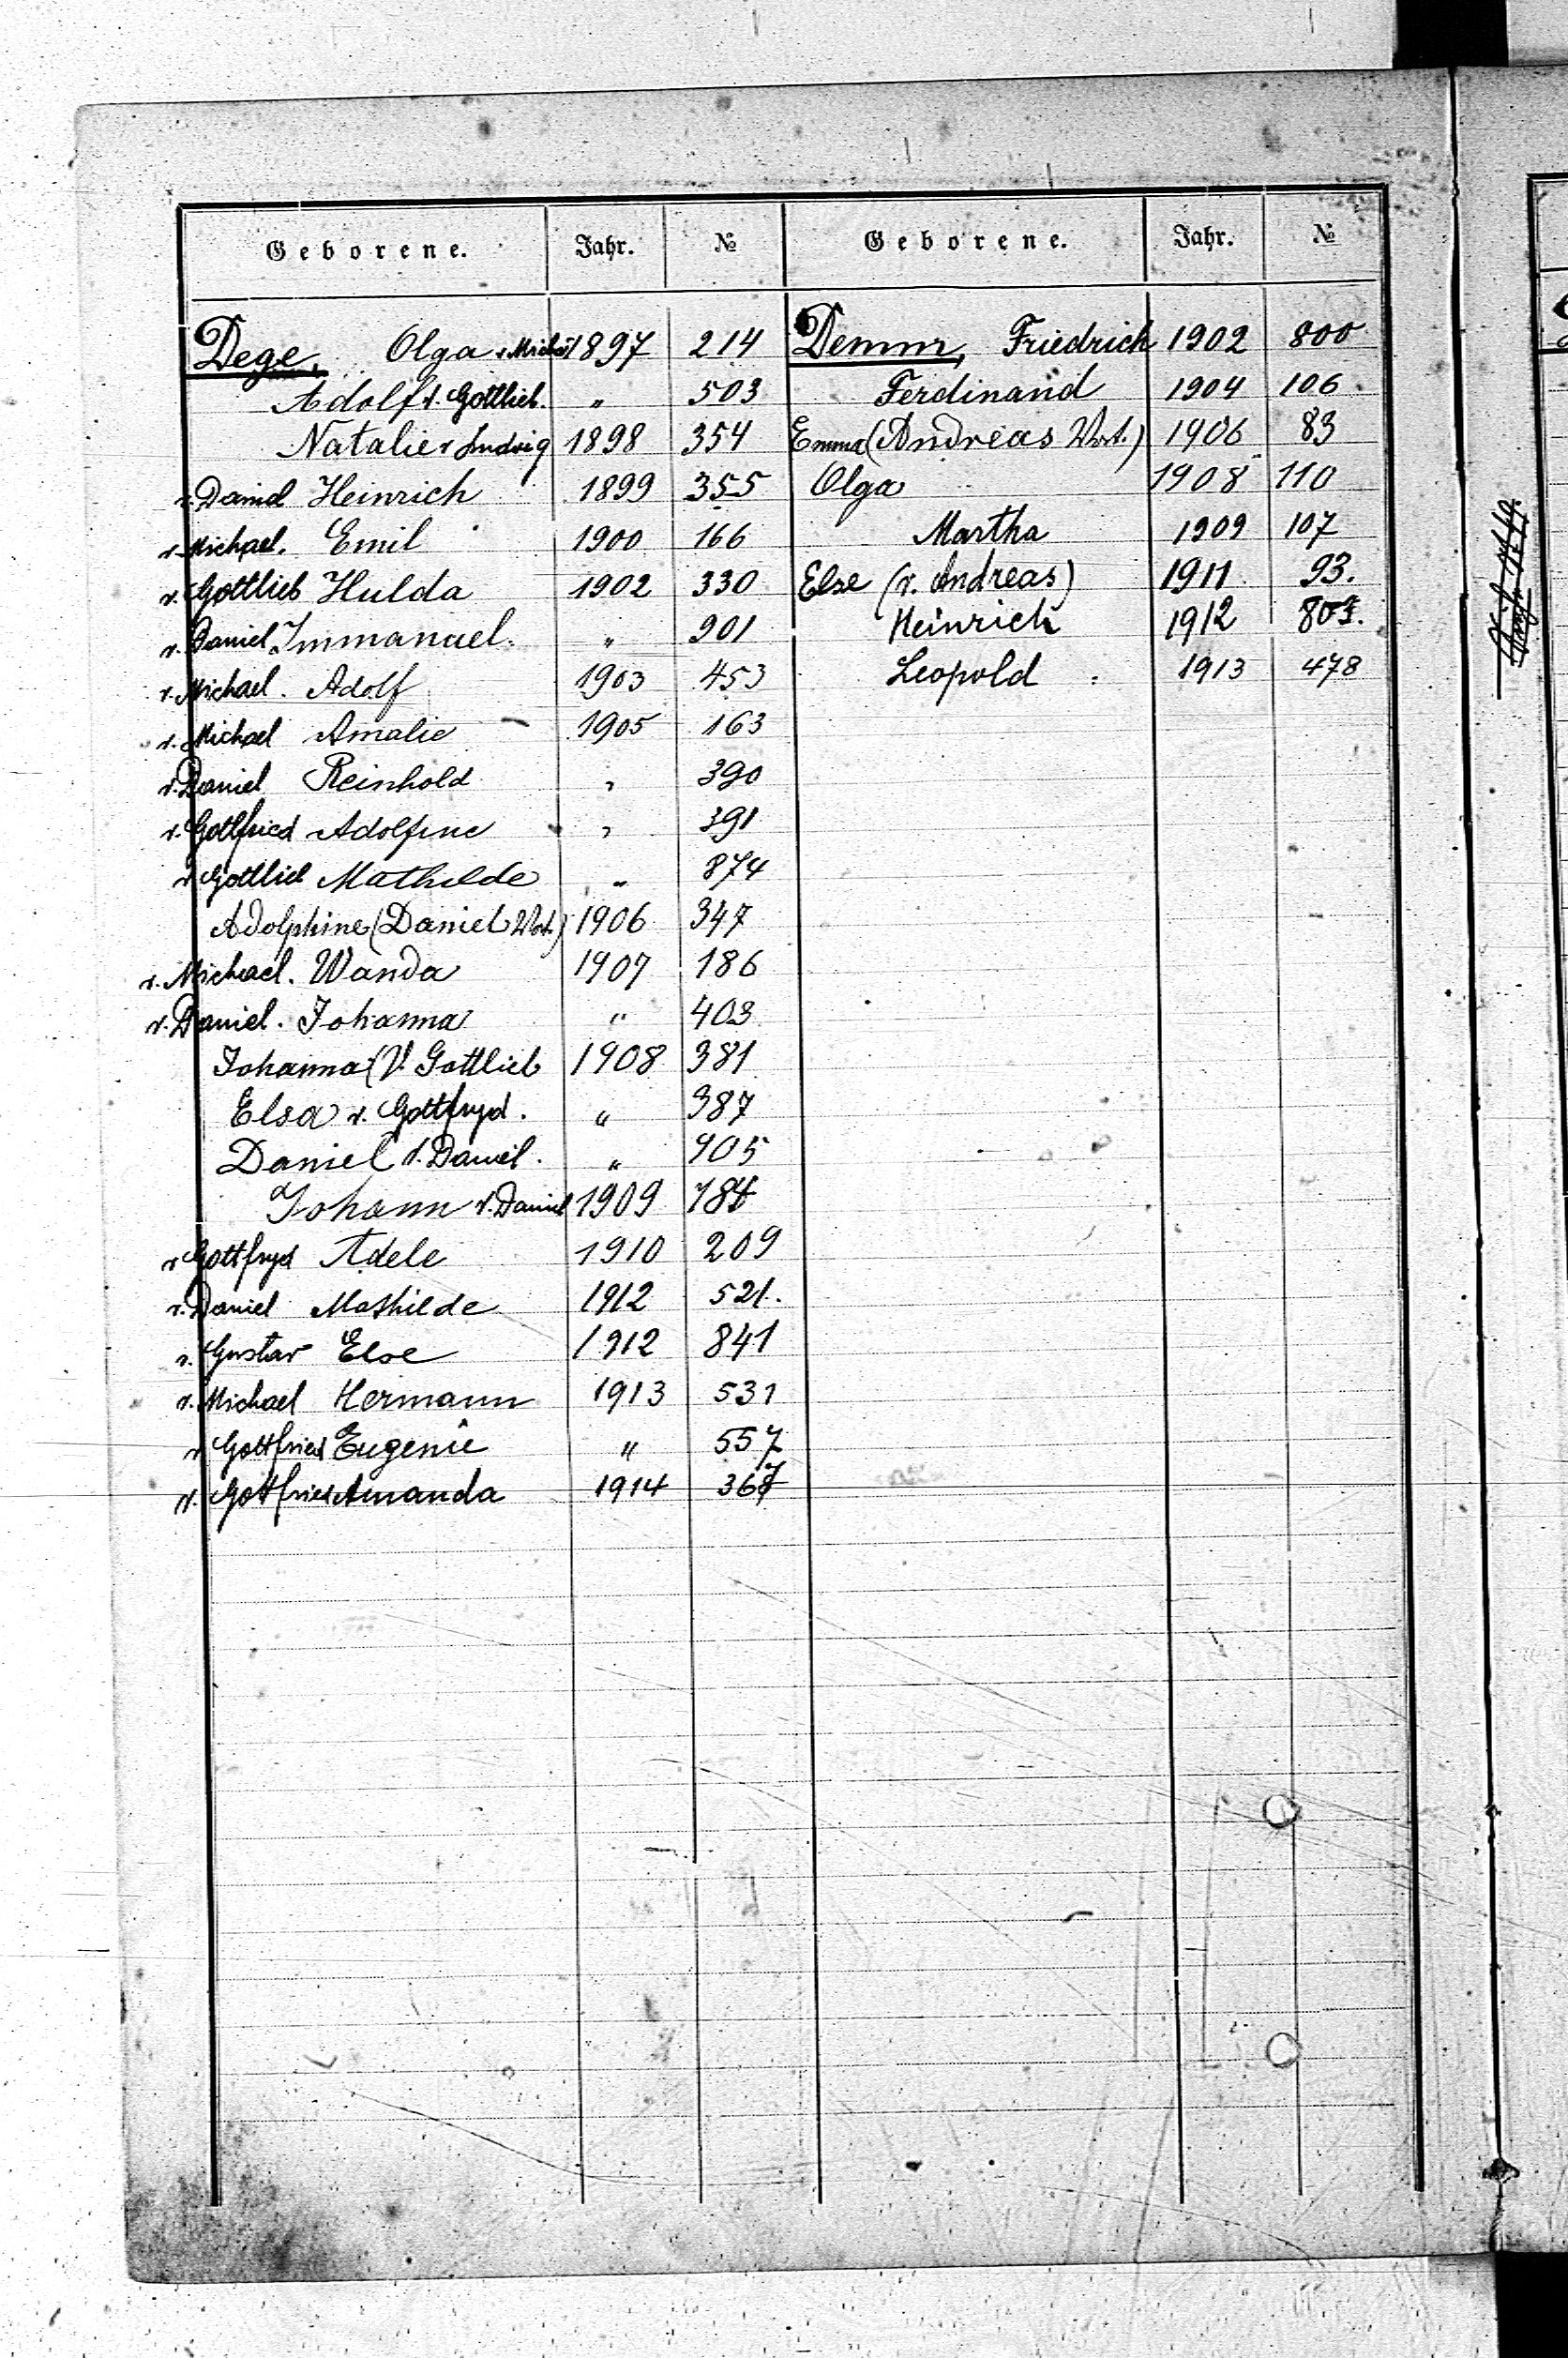 Geborene. Jahr. № 
Dege, Olga v. Michael 1897 214
Adolf v. Gottlieb. „ 503
Natalie v Ludwig 1898 354
v. Daniel Heinrich 1899 355
v. Michael. Emil 1900 166
v. Gottlieb Hulda 1902 330
v. Daniel Immanuel. „ 901
v. Michael. Adolf 1903 453
v. Michael Amalie 1905 163
v. Daniel Reinhold „ 390
v. Gottfried Adolfine „ 391
v Gottlieb Mathilde „ 874
Adolphine (Daniel Vat.) 1906 347
v. Michael. Wanda 1907 186
v. Daniel. Johanna „ 403
Johanna (V. Gottlieb 1908 381
Elsa v. Gottfryd. „ 387
Daniel v. Daniel. „ 905
Johann v. Daniel 1909 784
v Gottfryd Adele 1910 209
v. Daniel Mathilde 1912 521.
v. Gustav Else 1912 841
v. Michael Hermann 1913 531
v Gottfried Eugenie „ 557
v. Gottfried Amanda 1914 367
Geborene. Jahr. №
Demm, Friedrich 1902 800
Ferdinand 1904 106
Emma (Andreas Vat.) 1906 83
Olga 1908 110
Martha 1909 107
Else (v. Andreas) 1911 93.
Heinrich 1912
Leopold 1913 478